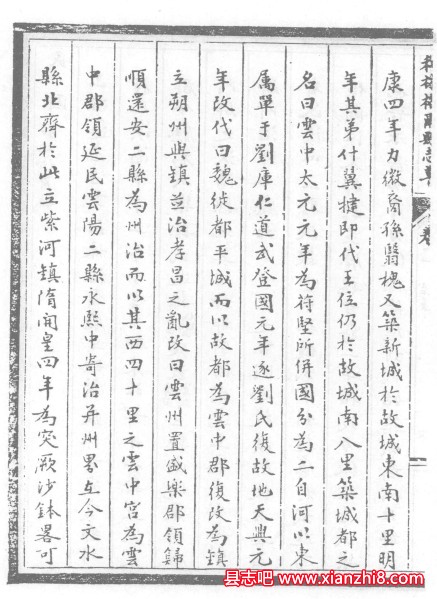 和林格爾縣志草
卷
康四年力微裔孫翳槐又築新城於故城東南十里明
年其弟什翼犍即代王位仍於故城南八里築城都之
名曰雲中太元元年為符堅所併國分為二自河以東
属單于劉庫仁道武登國元年逐劉氏復故地天興元
年改代曰魏徙都平城而以故都為雲中郡復改為鎮
立朔州與鎮並治孝昌之亂改曰雲州置盛樂郡領歸
順還安二縣為州治而以其西四十里之雲中宮為雲
中郡領延民雲陽二縣永熙中寄治并州界在今文水
縣北齊於此立紫河鎮隋開皇四年為突厥沙鉢畧可
县志吧
www.xianzhi8.com